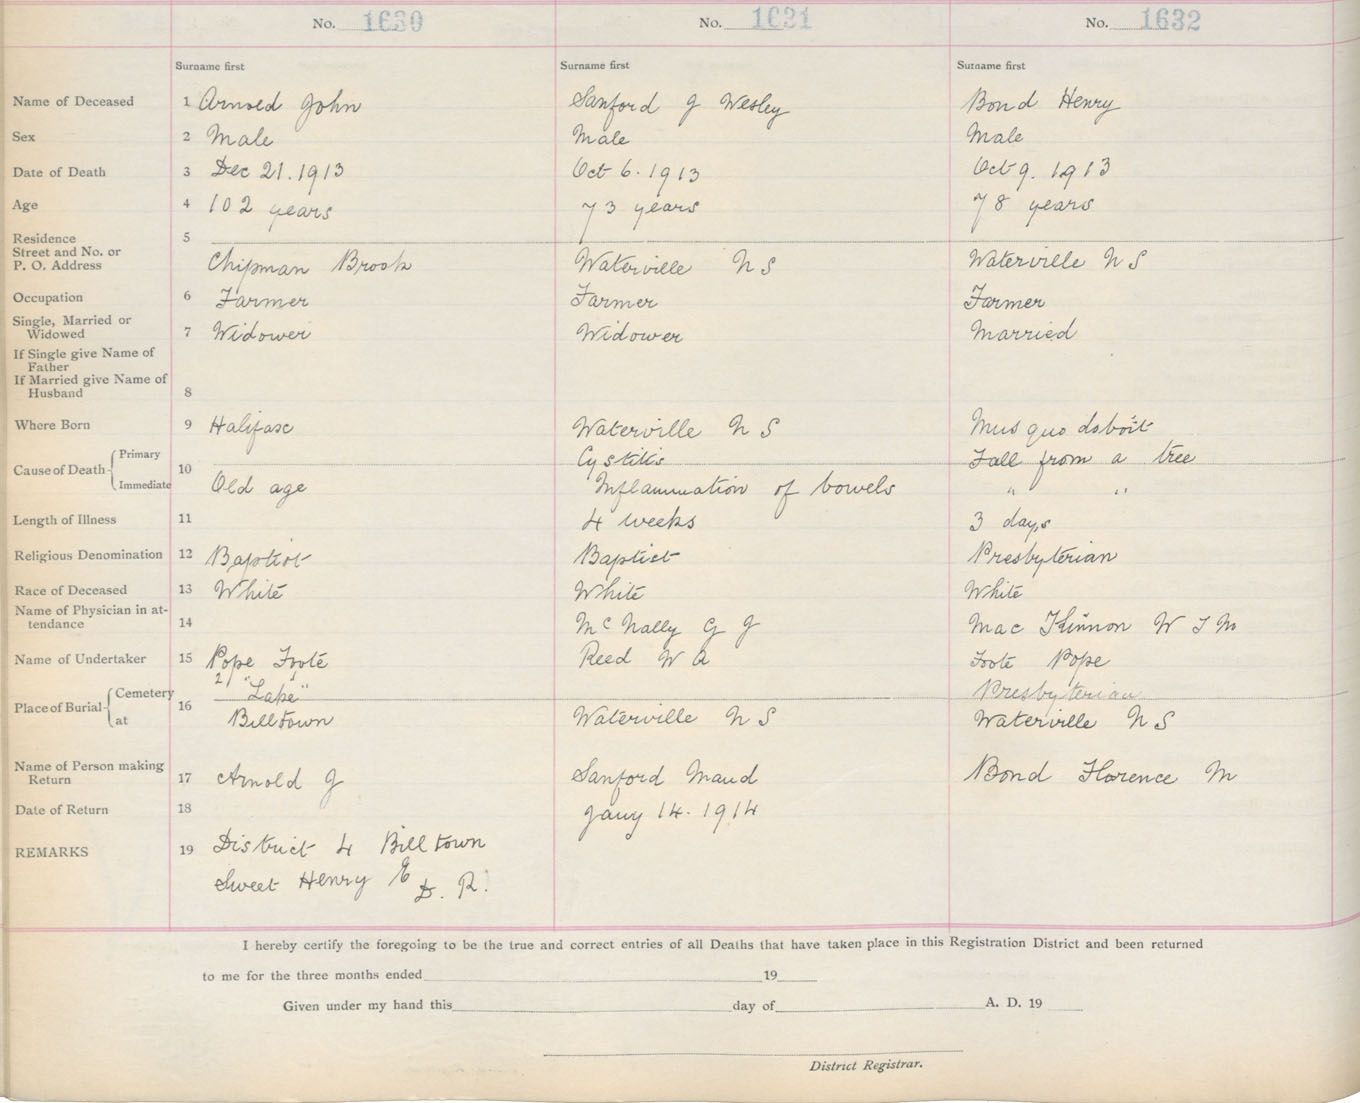 No. 1630 No. 1631 No. 1632
Surname first Surname first Surname first
Name of Deceased 1 Arnold John Sanford J Wesley Bond Henry
Sex 2 Male Male Male
Date of Death 3 Dec 21. 1913 Oct 6. 1913 Oct 9. 1913
Age 4 102 years 73 years 78 years
Residence 5
Street and No. or
P. O. Address Chipman Brook Waterville N S Waterville N S
Occupation 6 Farmer Farmer Farmer
Single, Married or
Widowed 7 Widower Widower Married
If Single give Name of
Father
If Married give Name of
Husband 8
Where Born 9 Halifax Waterville N S Musquodoboit
Cause of Death 10
Primary Cystitis Fall from a tree
Immediate Old age Inflammation of bowels " "
Length of Illness 11 4 weeks 3 days
Religious Denomination 12 Baptist Baptist Presbyterian
Race of Deceased 13 White White White
Name of Physician in at-
tendance 14 McNally G J Mac Kinnon W F M
Name of Undertaker 15 Pope Foote Reed W A Foote Pope
2 1
Place of Burial 16
Cemetery "Lake" Presbyterian
at Billtown Waterville N S Waterville N S
Name of Person making
Return 17 Arnold J Sanford Maud Bond Florence M
Date of Return 18 Jany 14. 1914
REMARKS 19 District 4 Billtown
Sweet Henry E D. R.
I hereby certify the foregoing to be the true and correct entries of all Deaths that have taken place in this Registration District and been returned
to me for the three months ended 19
Given under my hand this day of A. D. 19
District Registrar.